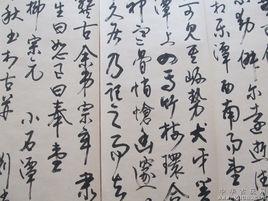 动俶尔远逝
乐潭西南而望
可见其岸势犬牙差
潭上四面竹树环合
神寒骨悄怆幽邃
久居乃记之而去
龚古余弟宗玄隶
生曰恕己曰奉壹
柳宗元 小石潭